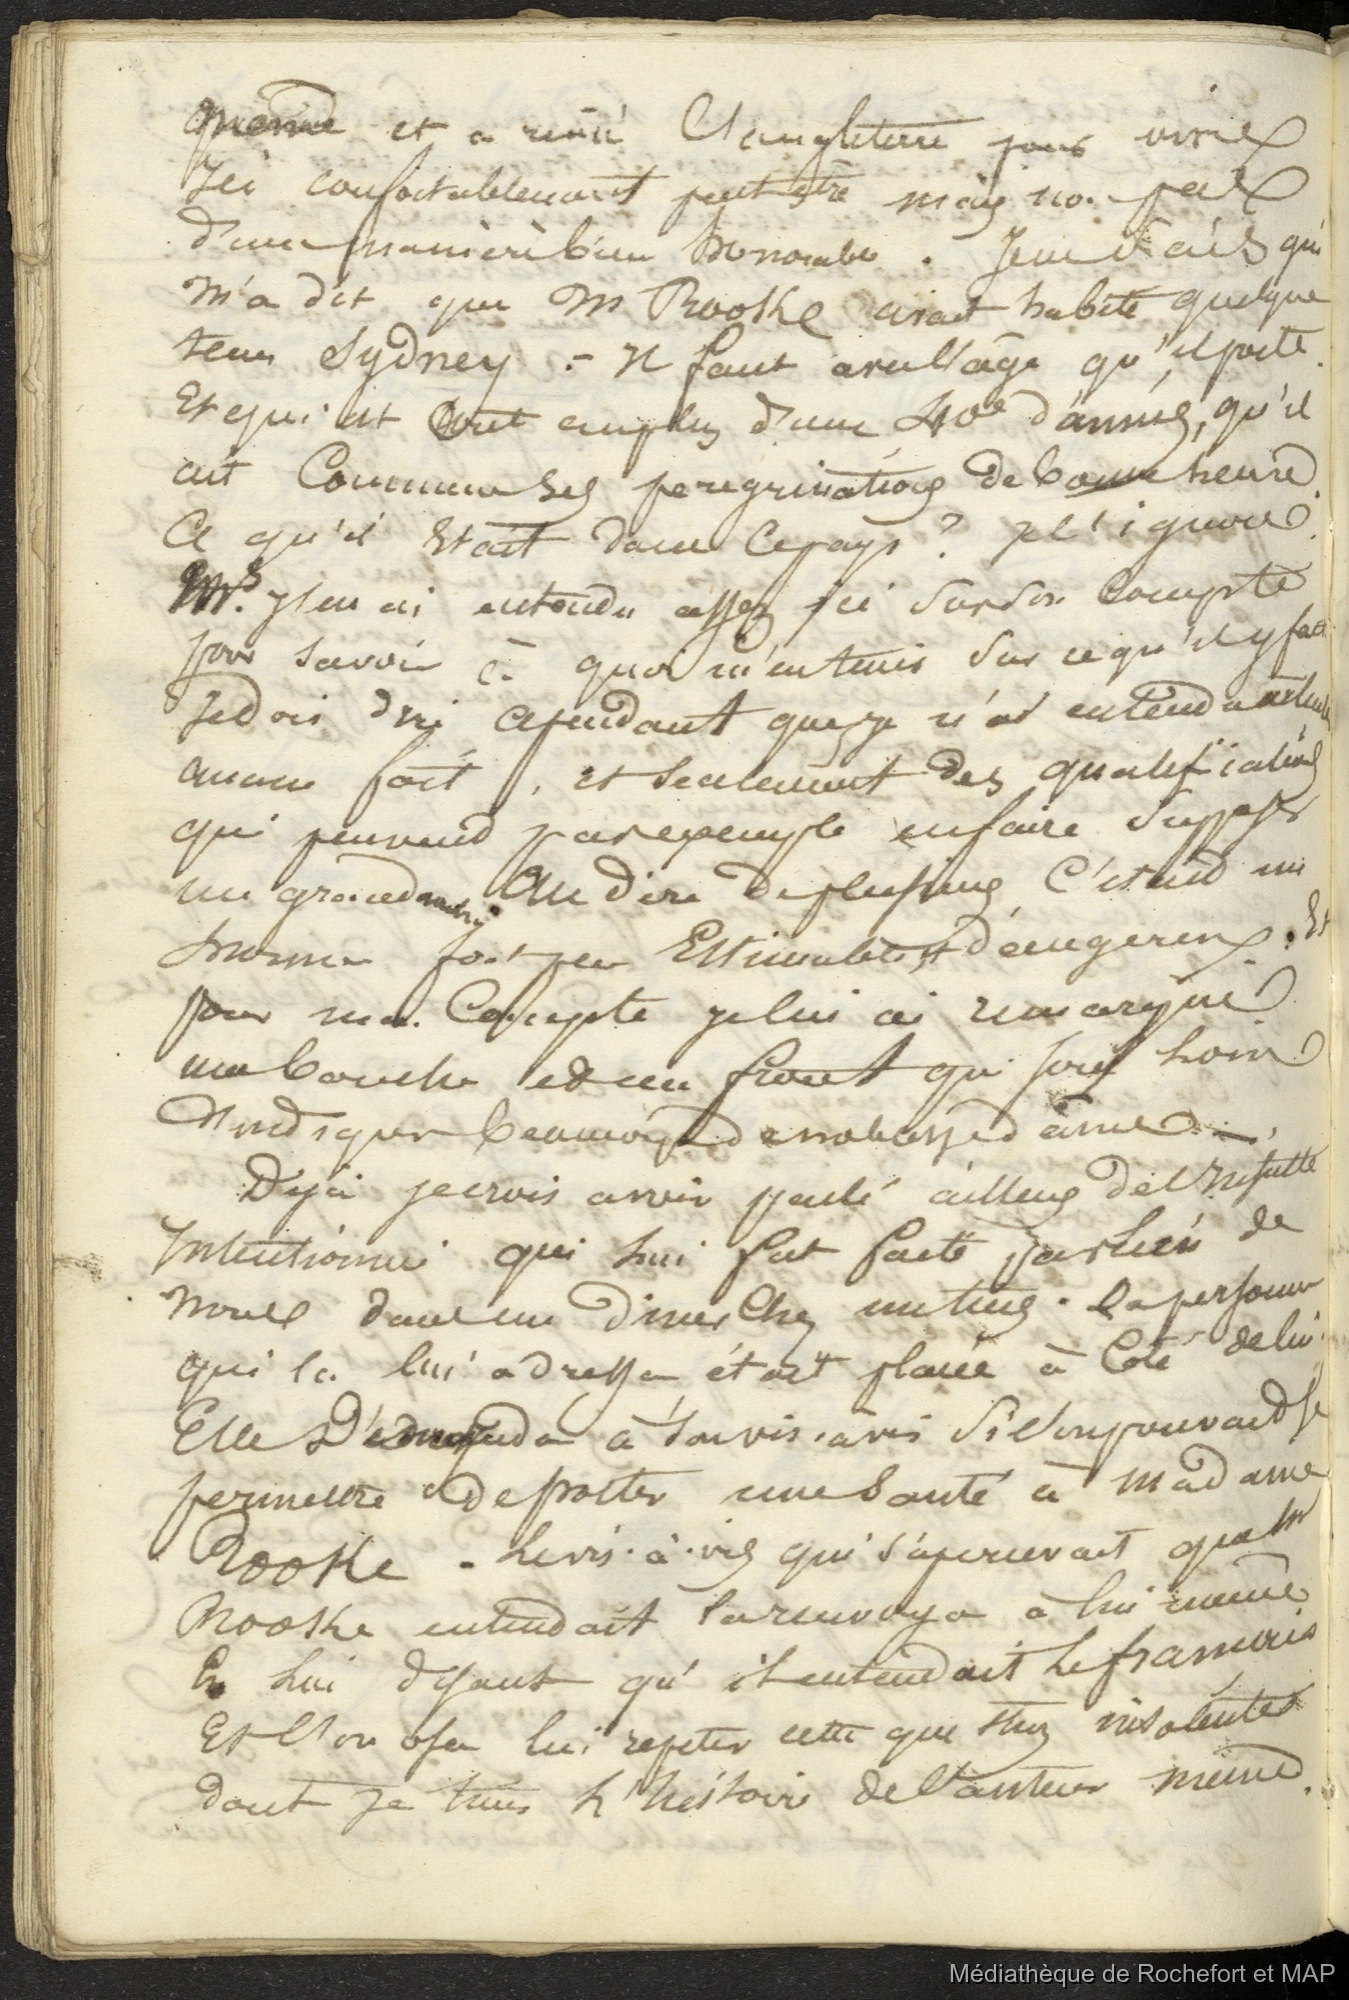 même et a renié l'angleterre pour vivre
Ici confortablement peut être mais non pas
d'une manière bien honorable. Je ne sais qui
m'a dit que M Rooke avait habité quelque
tems Sydney. - Il faut avec l'âge qu'il porte
Et qui est tout au plus d'une 40e d'années, qu'il
ait Commencé ses peregrinations de bonne heure.
Ce qu'il Etait dans ce pays ? je l'ignore.
Mrs. j'en ai entendu assez ici sur son Compte
pour savoir à quoi m'en tenir sur ce qu'il y fait
Je dois dire cependant que je n'ai entendu articuler
aucun fait, et seulement des qualifications
qui peuvent par exemple en faire supposer
un grand nombre Au dire de plusieurs C'étaid un
homme fort peu Estimable et dangereux. Et
pour mon Compte je lui ai remarqué
une bouche et un front qui sont loin
d'indiquer beaucoup de noblesse d'ame -
Deja je crois avoir parlé ailleurs de l'Insulte
Intentionnée qui lui fut faite par l'un de
nous dans un diner chez un tiers. La personne
qui la lui adressa était placée à Coté de lui.
Elle Demanda à son vis-à-vis Si l'on pouvaid se
permettre de porter une santé à madame
Rooke - Le vis-à-vis qui s'apercevait que Mr
Rooke entendait la renvoya à lui même
En lui disant qu'il entendait le francais
Et l'on osa lui repeter cette question insolente
dont je tiens l'histoire de l'auteur meme.
Médiathèque de Rochefort et MAP